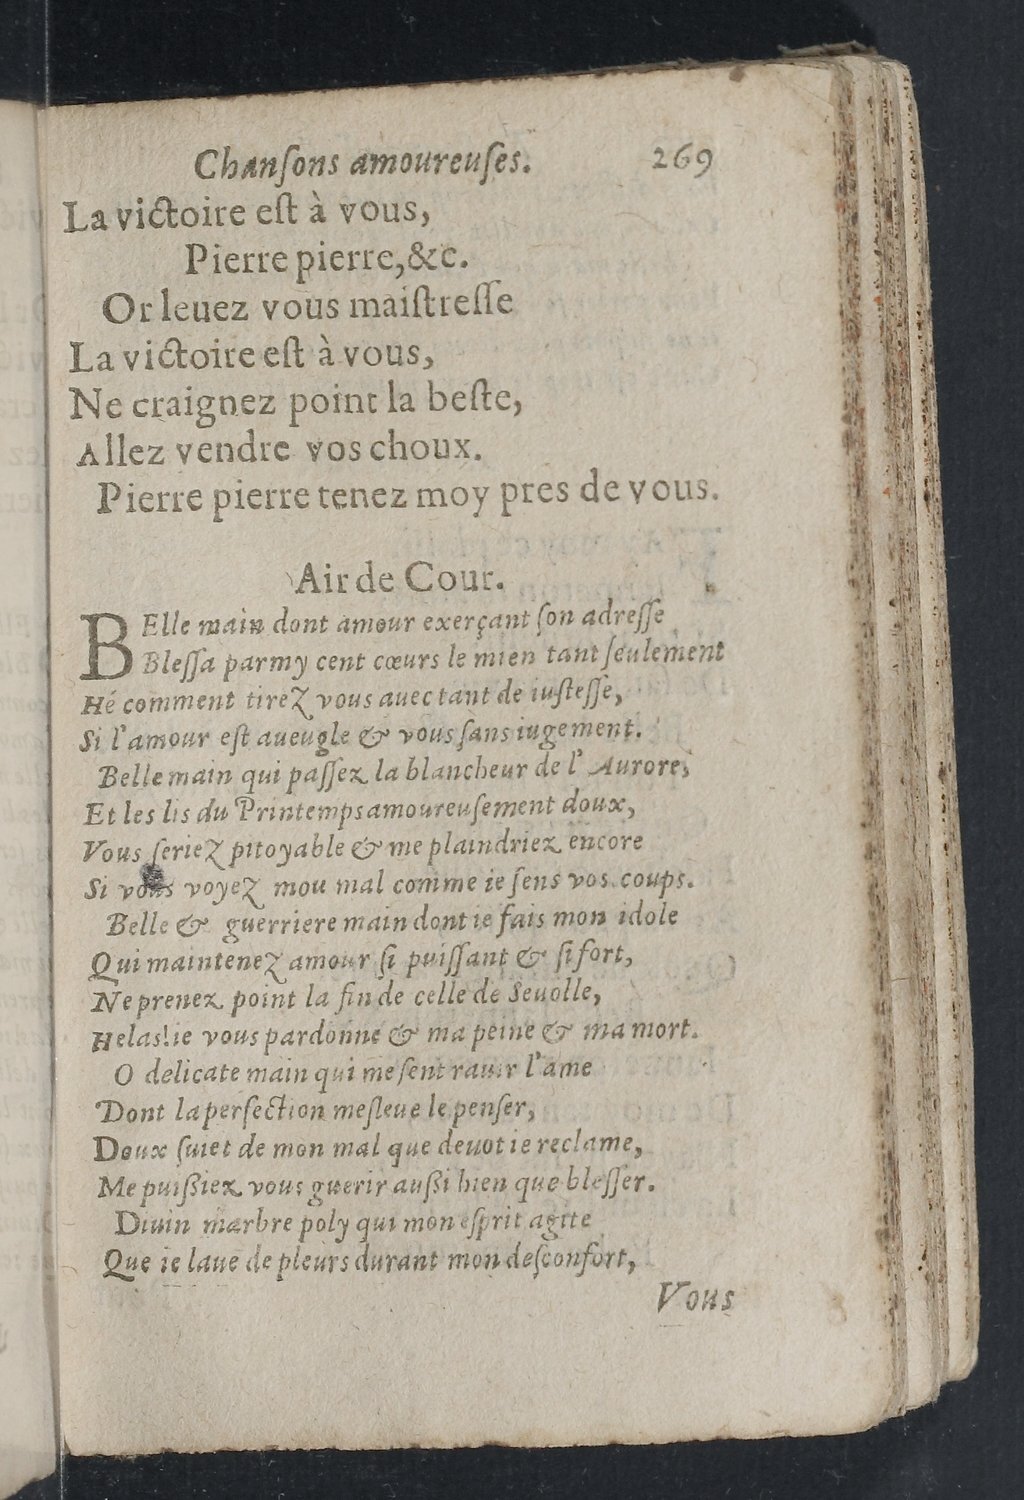 Chanſons amoureuſes. 269
La victoire eſt à vous,
Pierre pierre, &c.
Or leuez vous maiſtreſſe
La victoire eſt à vous,
Ne craignez point la beſte,
Allez vendre vos choux.
Pierre pierre tenez moy pres de vous.
Air de Cour.
BElle main dont amour exerçant ſon adreſſe
Bleſſa parmy cent cœurs le mien tant ſeulement
Hé comment tirez vous auec tant de iuſteſſe,
Si l'amour eſt aueugle & vous ſans iugement.
Belle main qui paſſez la blancheur de l'Aurore,
Et les lis du Printemps amoureuſement doux,
Vous ſeriez pitoyable & me plaindriez encore
Si vous voyez mou mal comme ie ſens vos coups.
Belle & guerriere main dont ie fais mon idole
Qui maintenez amour ſi puiſſant & ſi fort,
Ne prenez point la fin de celle de Seuolle,
Helas! ie vous pardonne & ma peine & ma mort.
O delicate main qui me ſent rauir l'ame
Dont la perfection meſleue le penſer,
Doux ſuiet de mon mal que deuot ie reclame,
Me puiſſiez vous guerir auſſi bien que bleſſer.
Diuin marbre poly qui mon eſprit agite
Que ie laue de pleurs durant mon deſconfort,
Vous